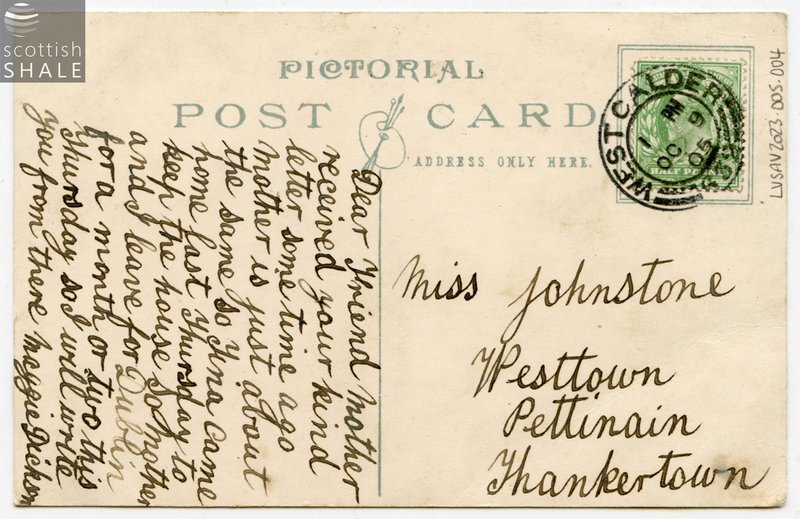 scottish
SHALE
PICTORIAL
POST CARD
ADDRESS ONLY HERE.
WEST CALDER
1 PM
OC 9
05
HALF PE
LVSAV2023.005.004
Dear Friend Mother
received your kind
letter some time ago
mother is just about
the same so Ina came
home last Thursday to
keep the house so Mother
and I leave for Dublin
for a month or two this
Thursday so I will write
you from there Meggie Dickson
Miss Johnstone
Westtown
Pettinain
Thankertown